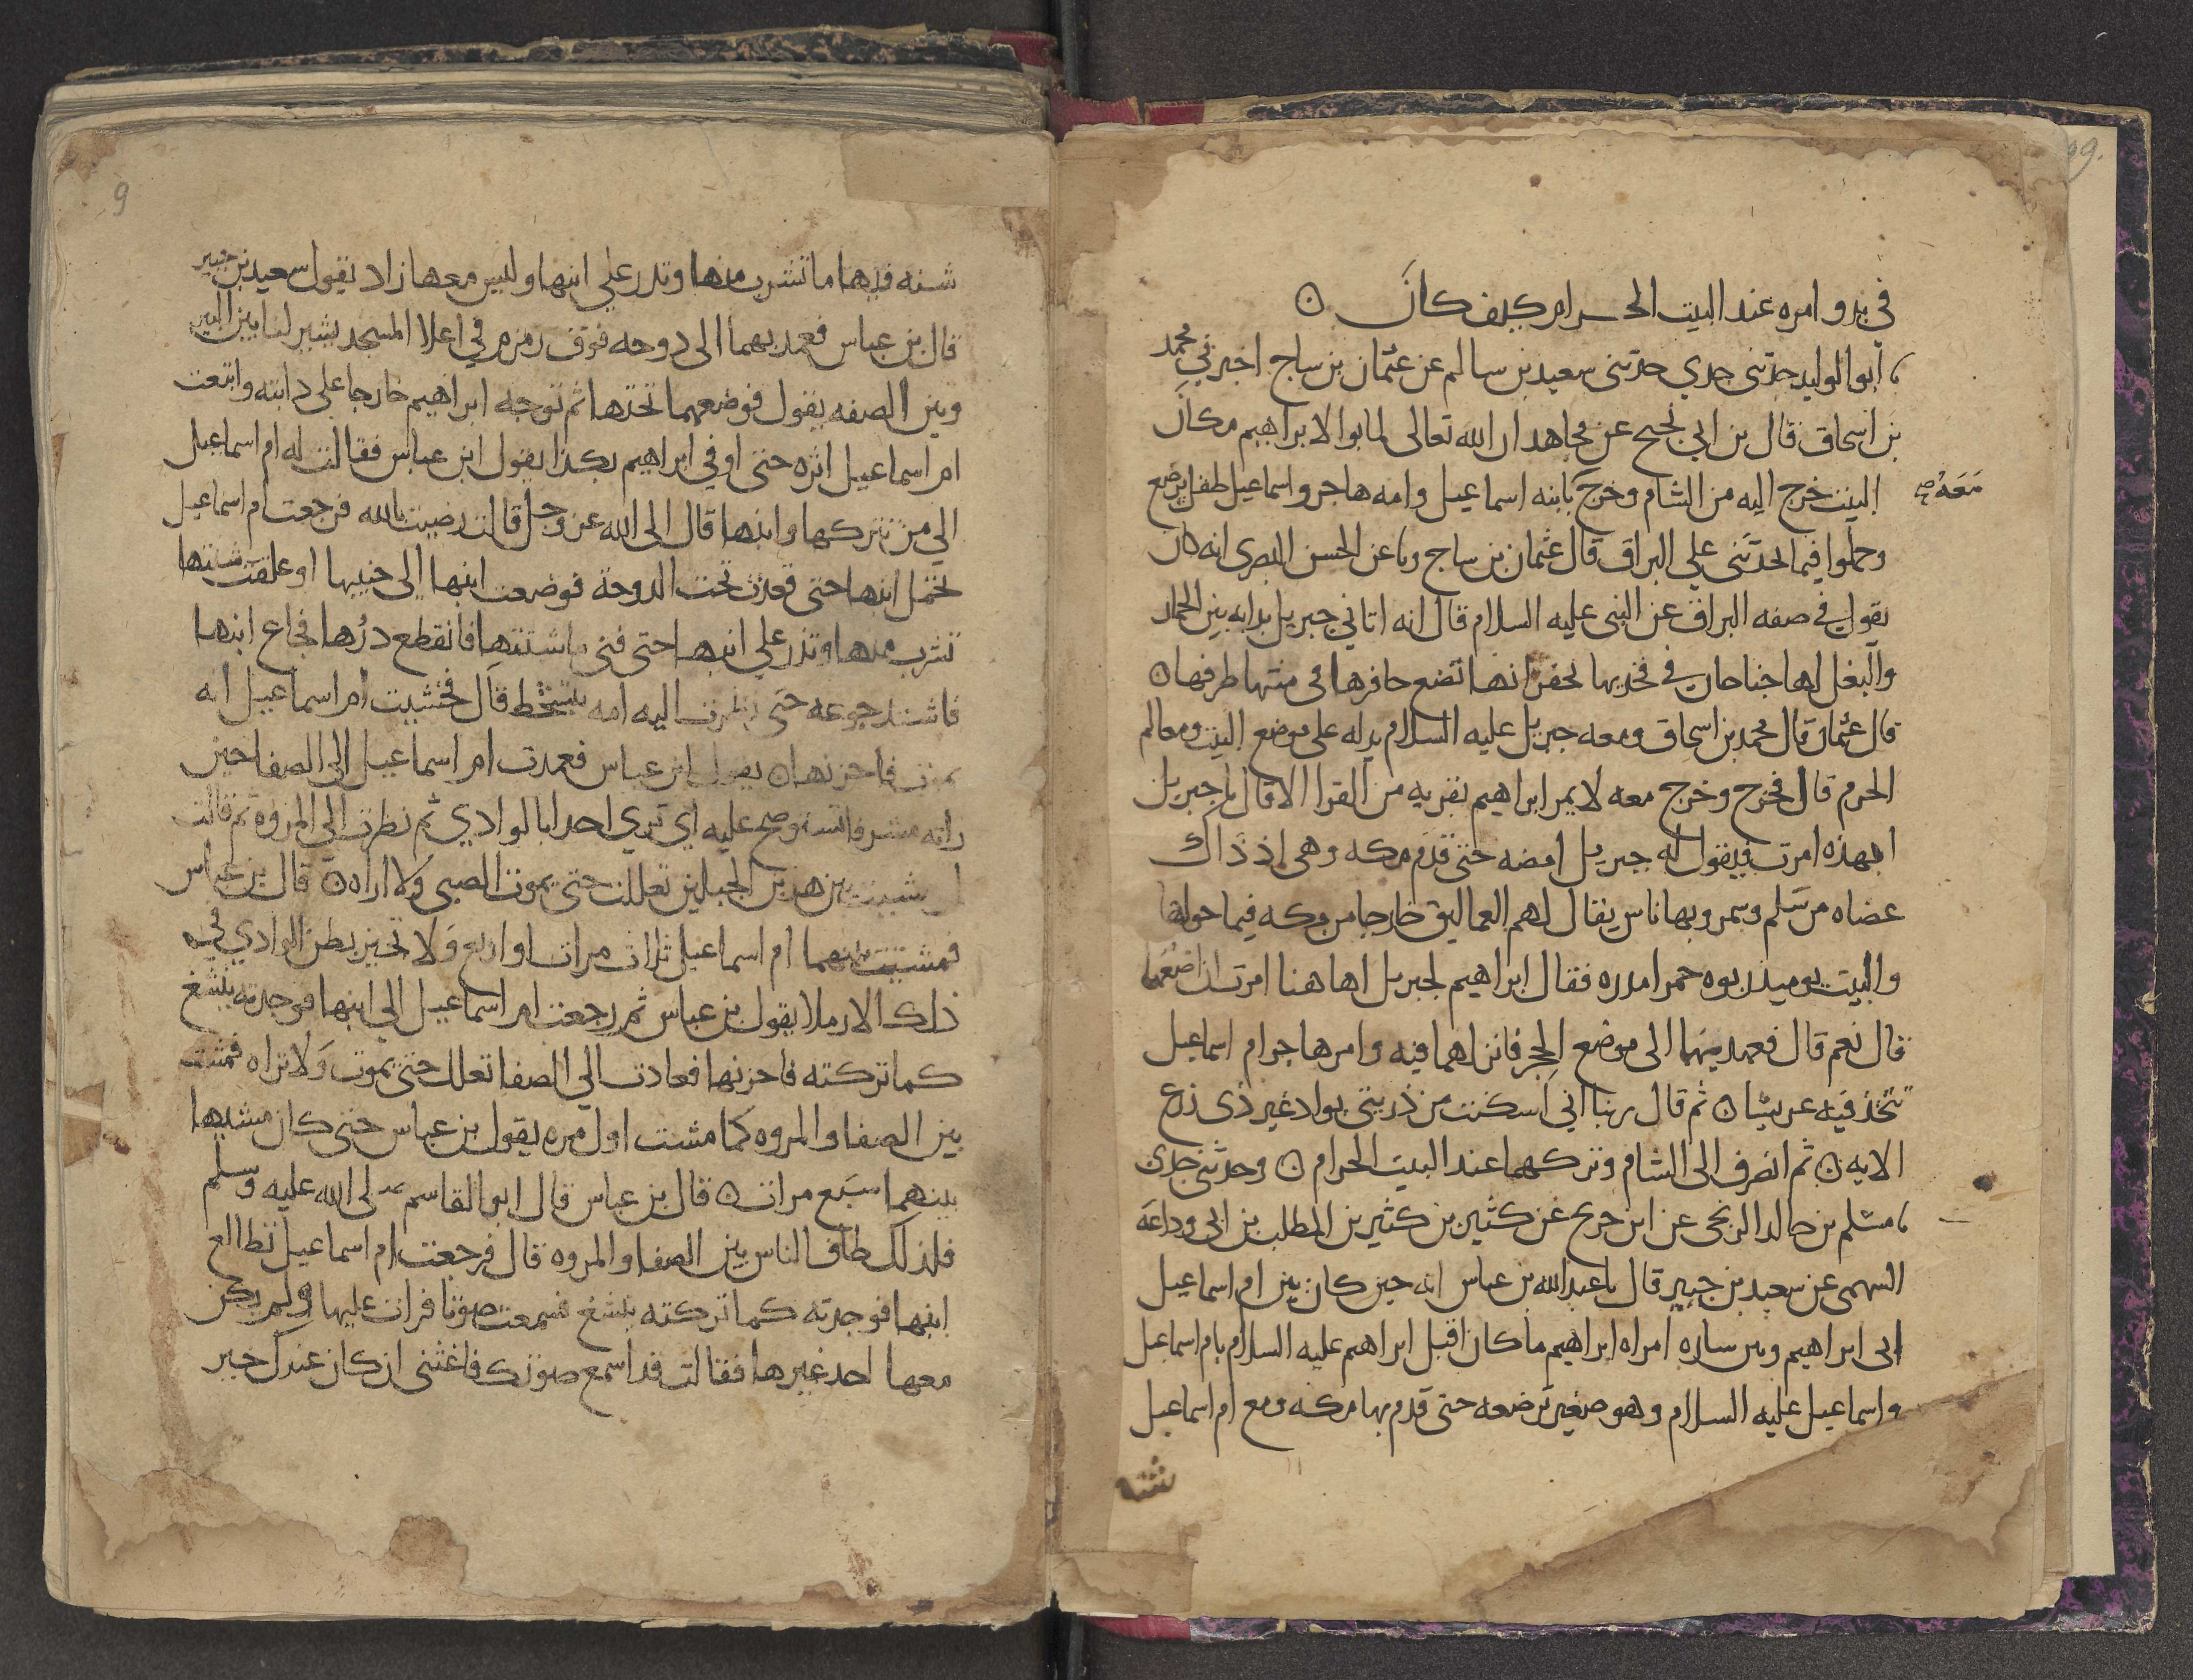 في بدو امره عند البيت الحرام كيف كان ٥
ابو الوليد حدثني جدي حدثني سعيد بن سالم عن عثمان بن ساج اخبرني محمد
بن اسحاق قال بن ابي نجيح عن مجاهد ان الله تعالى لما بوا لابراهيم مكان
البيت خرج اليه من الشام وخرج بابنه اسماعيل وامه هاجر واسماعيل طفل يرضع
معه صح
وحملوا فيما حدثني علي البراق قال عثمان بن ساج ونا عن الحسن البصري انه كان
يقول في صفه البراق عن النبي عليه السلام قال انه اتاني جبريل بدابه بين الحمار
والبغل لها جناحان في فخذيها تحفزانها تضع حافرها في منتها طرفها ٥
قال عثمان قال محمد بن اسحاق ومعه جبريل عليه السلام يدله على موضع البيت ومعالم
الحرم قال فخرج وخرج معه لا يمر ابراهيم بقريه من القرا الا قال يا جبريل
ابهذه امرت فيقول له جبريل امضه حتى قدم مكه وهي اذ ذاك
عضاه من سلم وسمر وبها ناس يقال لهم العماليق خارجا من مكه فيما حولها
والبيت يوميذ ربوه حمرا مدره فقال ابراهيم لجبريل اهاهنا امرت ان اضعهما
قال نعم قال فعمد بهما الى موضع الحجر فانزلهما فيه وامر هاجر ام اسماعيل
تتخذ فيه عريشا ٥ ثم قال ربنا اني اسكنت من ذريتي بواد غير ذي زرع
الايه ٥ ثم انصرف الى الشام وتركهما عند البيت الحرام ٥ وحدثني جدي
مسلم بن خالد الزنجي عن ابن جريج عن كثير بن كثير بن المطلب بن ابي وداعه
السهمي عن سعيد بن جبير قال نا عبد الله بن عباس انه حين كان بين ام اسماعيل
ابن ابراهيم وبين ساره امراه ابراهيم ما كان اقبل ابراهيم عليه السلام بام اسماعيل
واسماعيل عليه السلام وهو صغير ترضعه حتى قدم بها مكه ومع ام اسماعيل
شنه
9
شنه فيها ما تشرب منها وتدر علي ابنها وليس معها زاد يقول سعيد بن جبير
قال بن عباس فعمد بهما الى دوحه فوق زمزم في اعلا المسجد يشير لنا بين البير
وبين الصفه يقول فوضعهما تحتها ثم توجه ابراهيم خارجا على دابته واتبعت
ام اسماعيل اثره حتى اوفي ابراهيم بكدا يقول ابن عباس فقالت له ام اسماعيل
الي من تتركها وابنها قال الى الله عز وجل قالت رضيت بالله فرجعت ام اسماعيل
تحمل ابنها حتى قعدت تحت الدوحة فوضعت ابنها الى جنبها او علقت شنتها
تشرب منها وتدر علي ابنها حتى فني ما شنتها فانقطع درها فجاع ابنها
فاشتد جوعه حتى نظرت اليه امه يتشحط قال فخشيت ام اسماعيل انه
يموت فاحزنها ٥ يقول ابن عباس فعمدت ام اسماعيل الى الصفا حين
راته مشرفا تستوضح عليه اي تري احدا بالوادي ثم نظرت الي المروه ثم قالت
لو مشيت بين هذين الجبلين تعللت حتى يموت الصبي ولا اراه ٥ قال بن عباس
فمشيت بينهما ام اسماعيل ثلاث مرات او اربع ولا تجيز بطن الوادي في
ذلك الا رملا يقول بن عباس ثم رجعت ام اسماعيل الى ابنها فوجدته ينشغ
كما تركته فاحزنها فعادت الي الصفا تعلل حتى يموت ولا تراه فمشت
بين الصفا والمروه كما مشت اول مره يقول بن عباس حتى كان مشيها
بينهما سبع مرات ٥ قال بن عباس قال ابو القاسم صلى الله عليه وسلم
فلذلك طاف الناس بين الصفا والمروه قال فرجعت ام اسماعيل تطالع
ابنها فوجدته كما تركته ينشغ فسمعت صوتا فراث عليها ولم يكن
معها احد غيرها فقالت قد اسمع صوتك فاغثني ان كان عندك خير